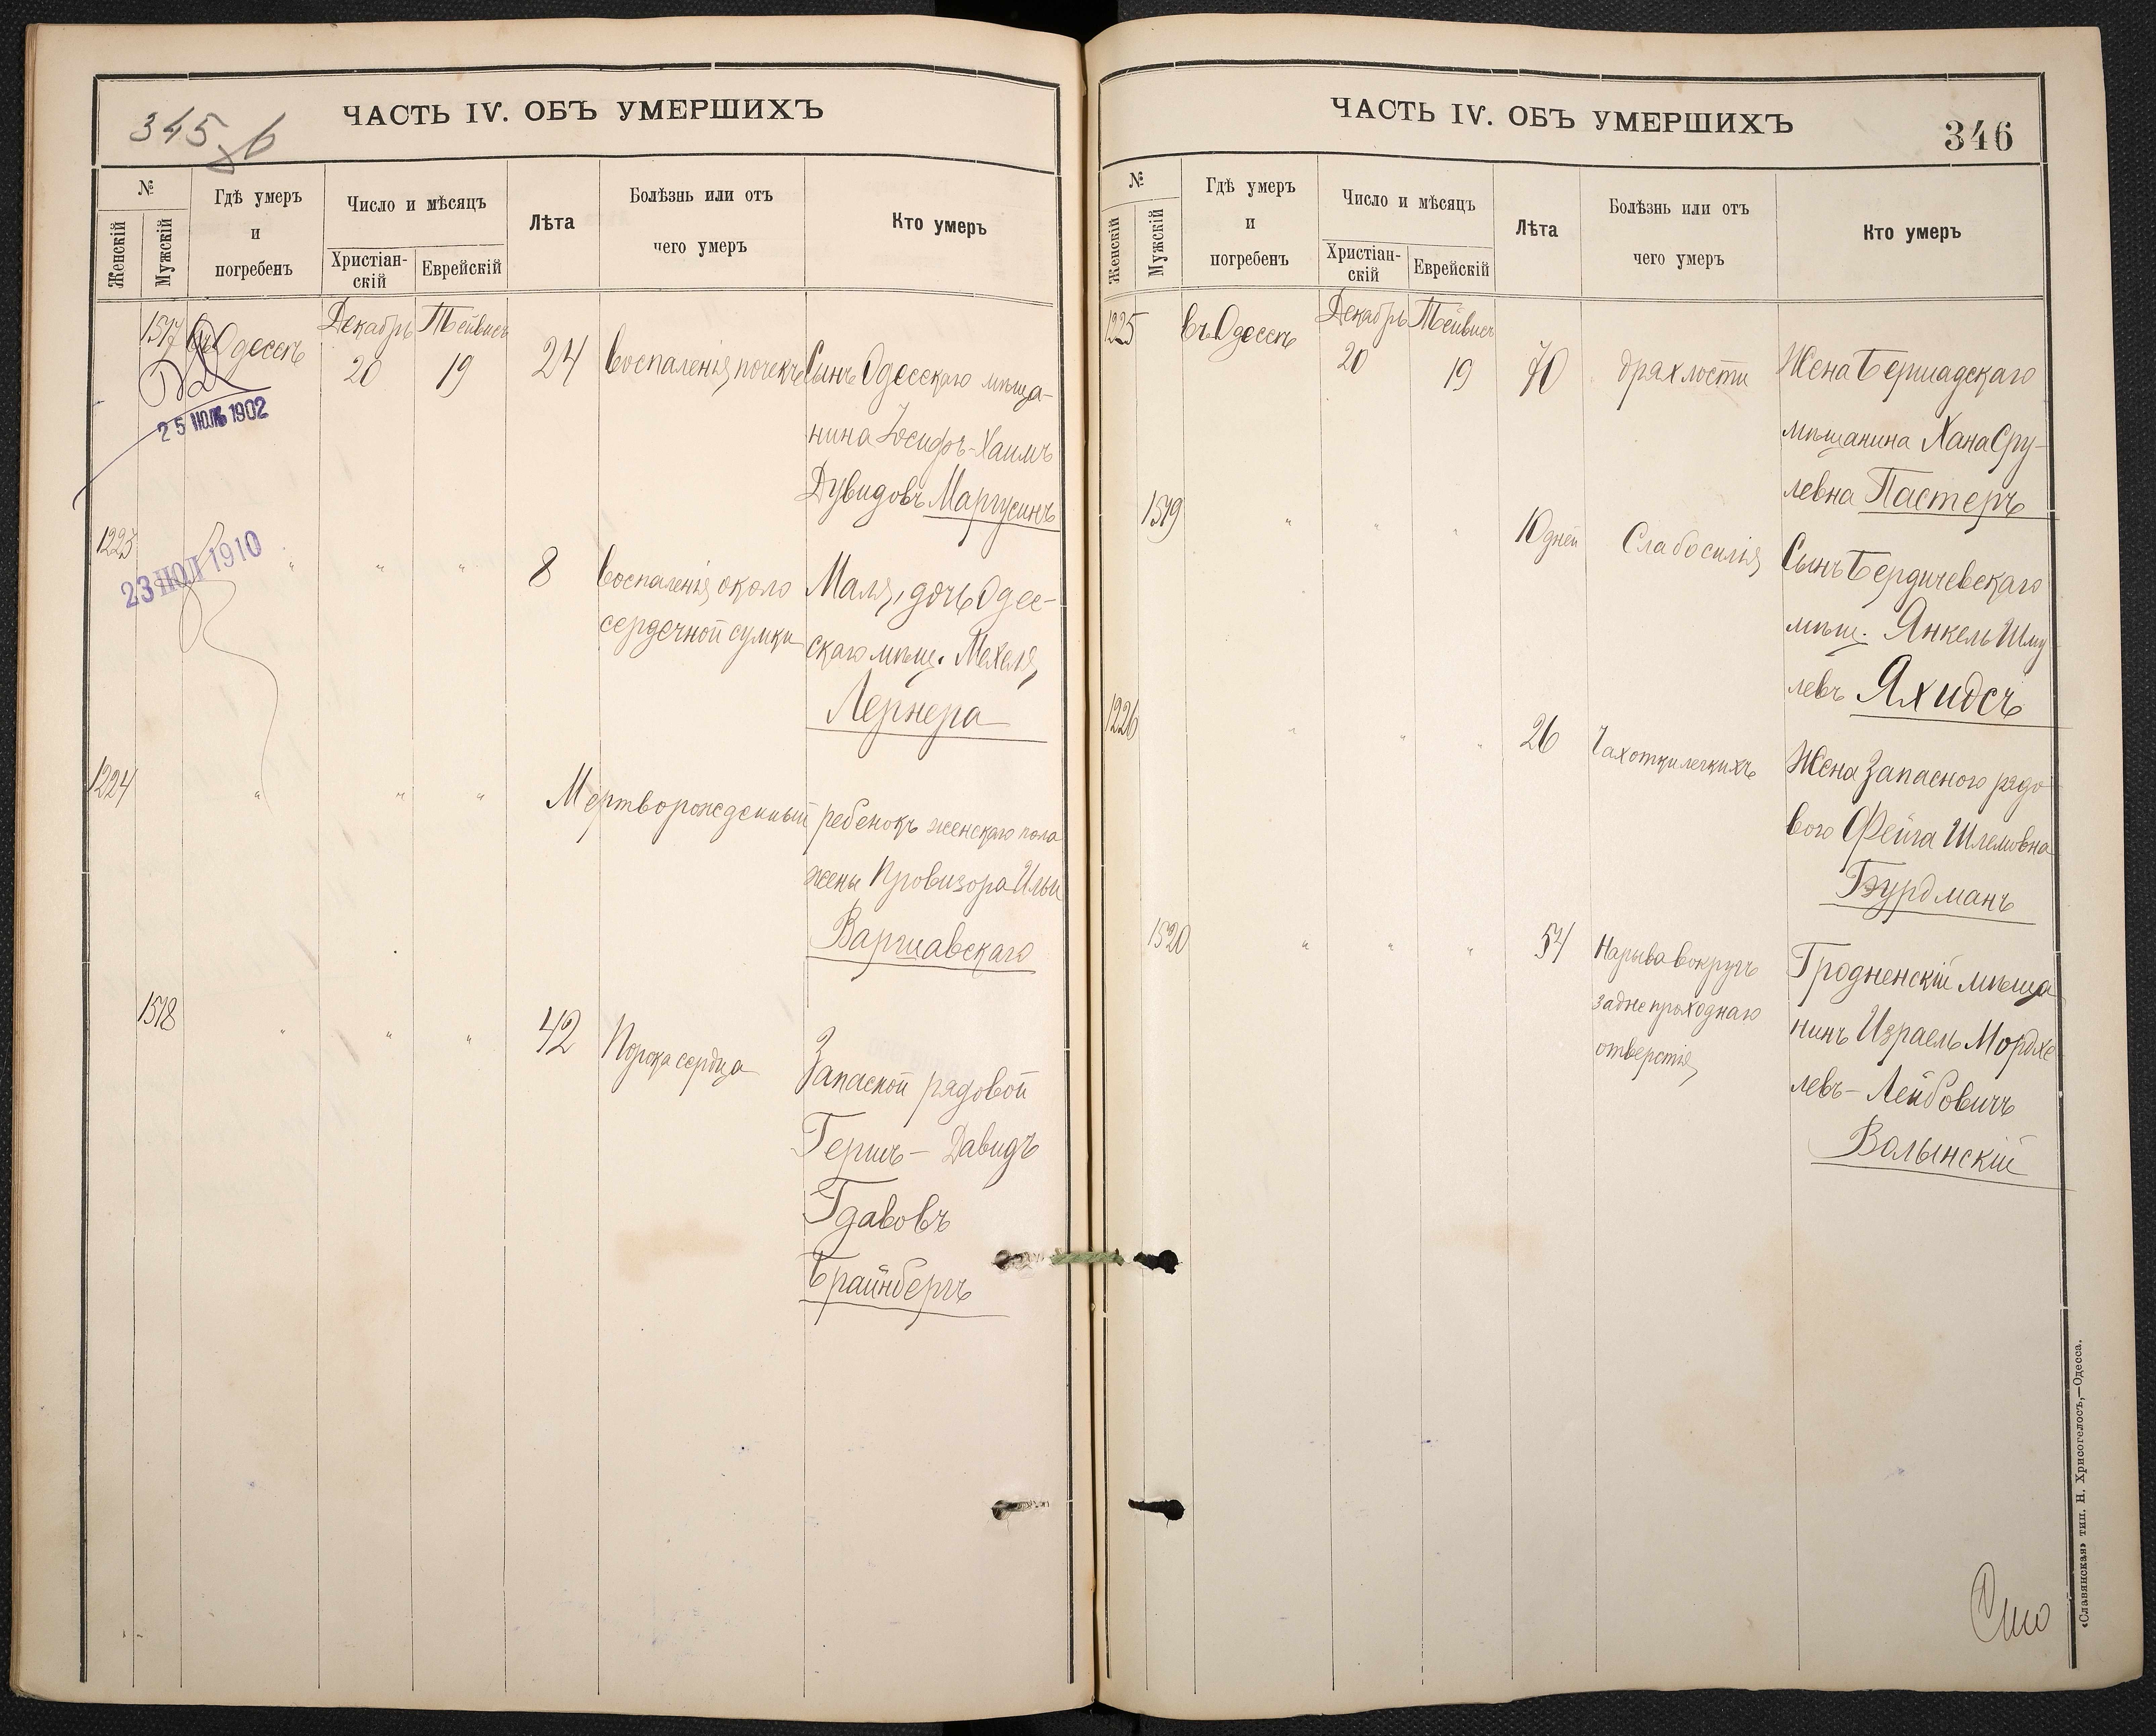 345 б
ЧАСТЬ IV. ОБЪ УМЕРШИХЪ
№
Женскій
Мужскій
Гдѣ умеръ
и
погребенъ
Число и мѣсяцъ
Христіан-
скій
Еврейскій
Лѣта
Болѣзнь или отъ
чего умеръ
Кто умеръ
1517
въ Одессѣ
Декабрь
20
Тейвисъ
19
24
воспаленія почекъ
Сынъ Одесскаго мѣща-
нина Іосифъ-Хаимъ
Дувидовъ Маргусинъ
25 ИЮЛЬ 1902
1223
23 ИЮЛ 1910
" " "
8
воспаленія около
сердечной сумки
Маля, дочь Одес-
скаго мѣщ. Мехеля,
Лернера
1224
" " "
Мертворожденный ребенокъ женскаго пола
жены Провизора Ильи
Варшавскаго
1518
" " "
42
Порока сердца
Запасной рядовой
Гершъ - Давидъ
Гдавовъ
Брайнбергъ
ЧАСТЬ IV. ОБЪ УМЕРШИХЪ
346
№
Женскій
Мужскій
Гдѣ умеръ
и
погребенъ
Число и мѣсяцъ
Христіан-
скій
Еврейскій
Лѣта
Болѣзнь или отъ
чего умеръ
Кто умеръ
1225
въ Одессѣ
Декабрь
20
Тейвисъ
19
70
дряхлости
Жена Бершадскаго
мѣщанина Хана Сру-
левна Пастеръ
1519
" " "
10 дней
Слабосилія
Сынъ Бердичевскаго
мѣщ. Янкель Шму
левъ Яхидсъ
1226
" " "
26
Чахотки легкихъ
Жена Запасного рядо
вого Фейга Шлемовна
Бурдманъ
1520
" " "
54
Нарыва вокругъ
заднепроходнаго
отверстія
Гродненскій мѣща
нинъ Израель Мордхе
левъ - Лейбовичъ
Волынскій
«Славянская» тип. Н. Хрисогелосъ,—Одесса.